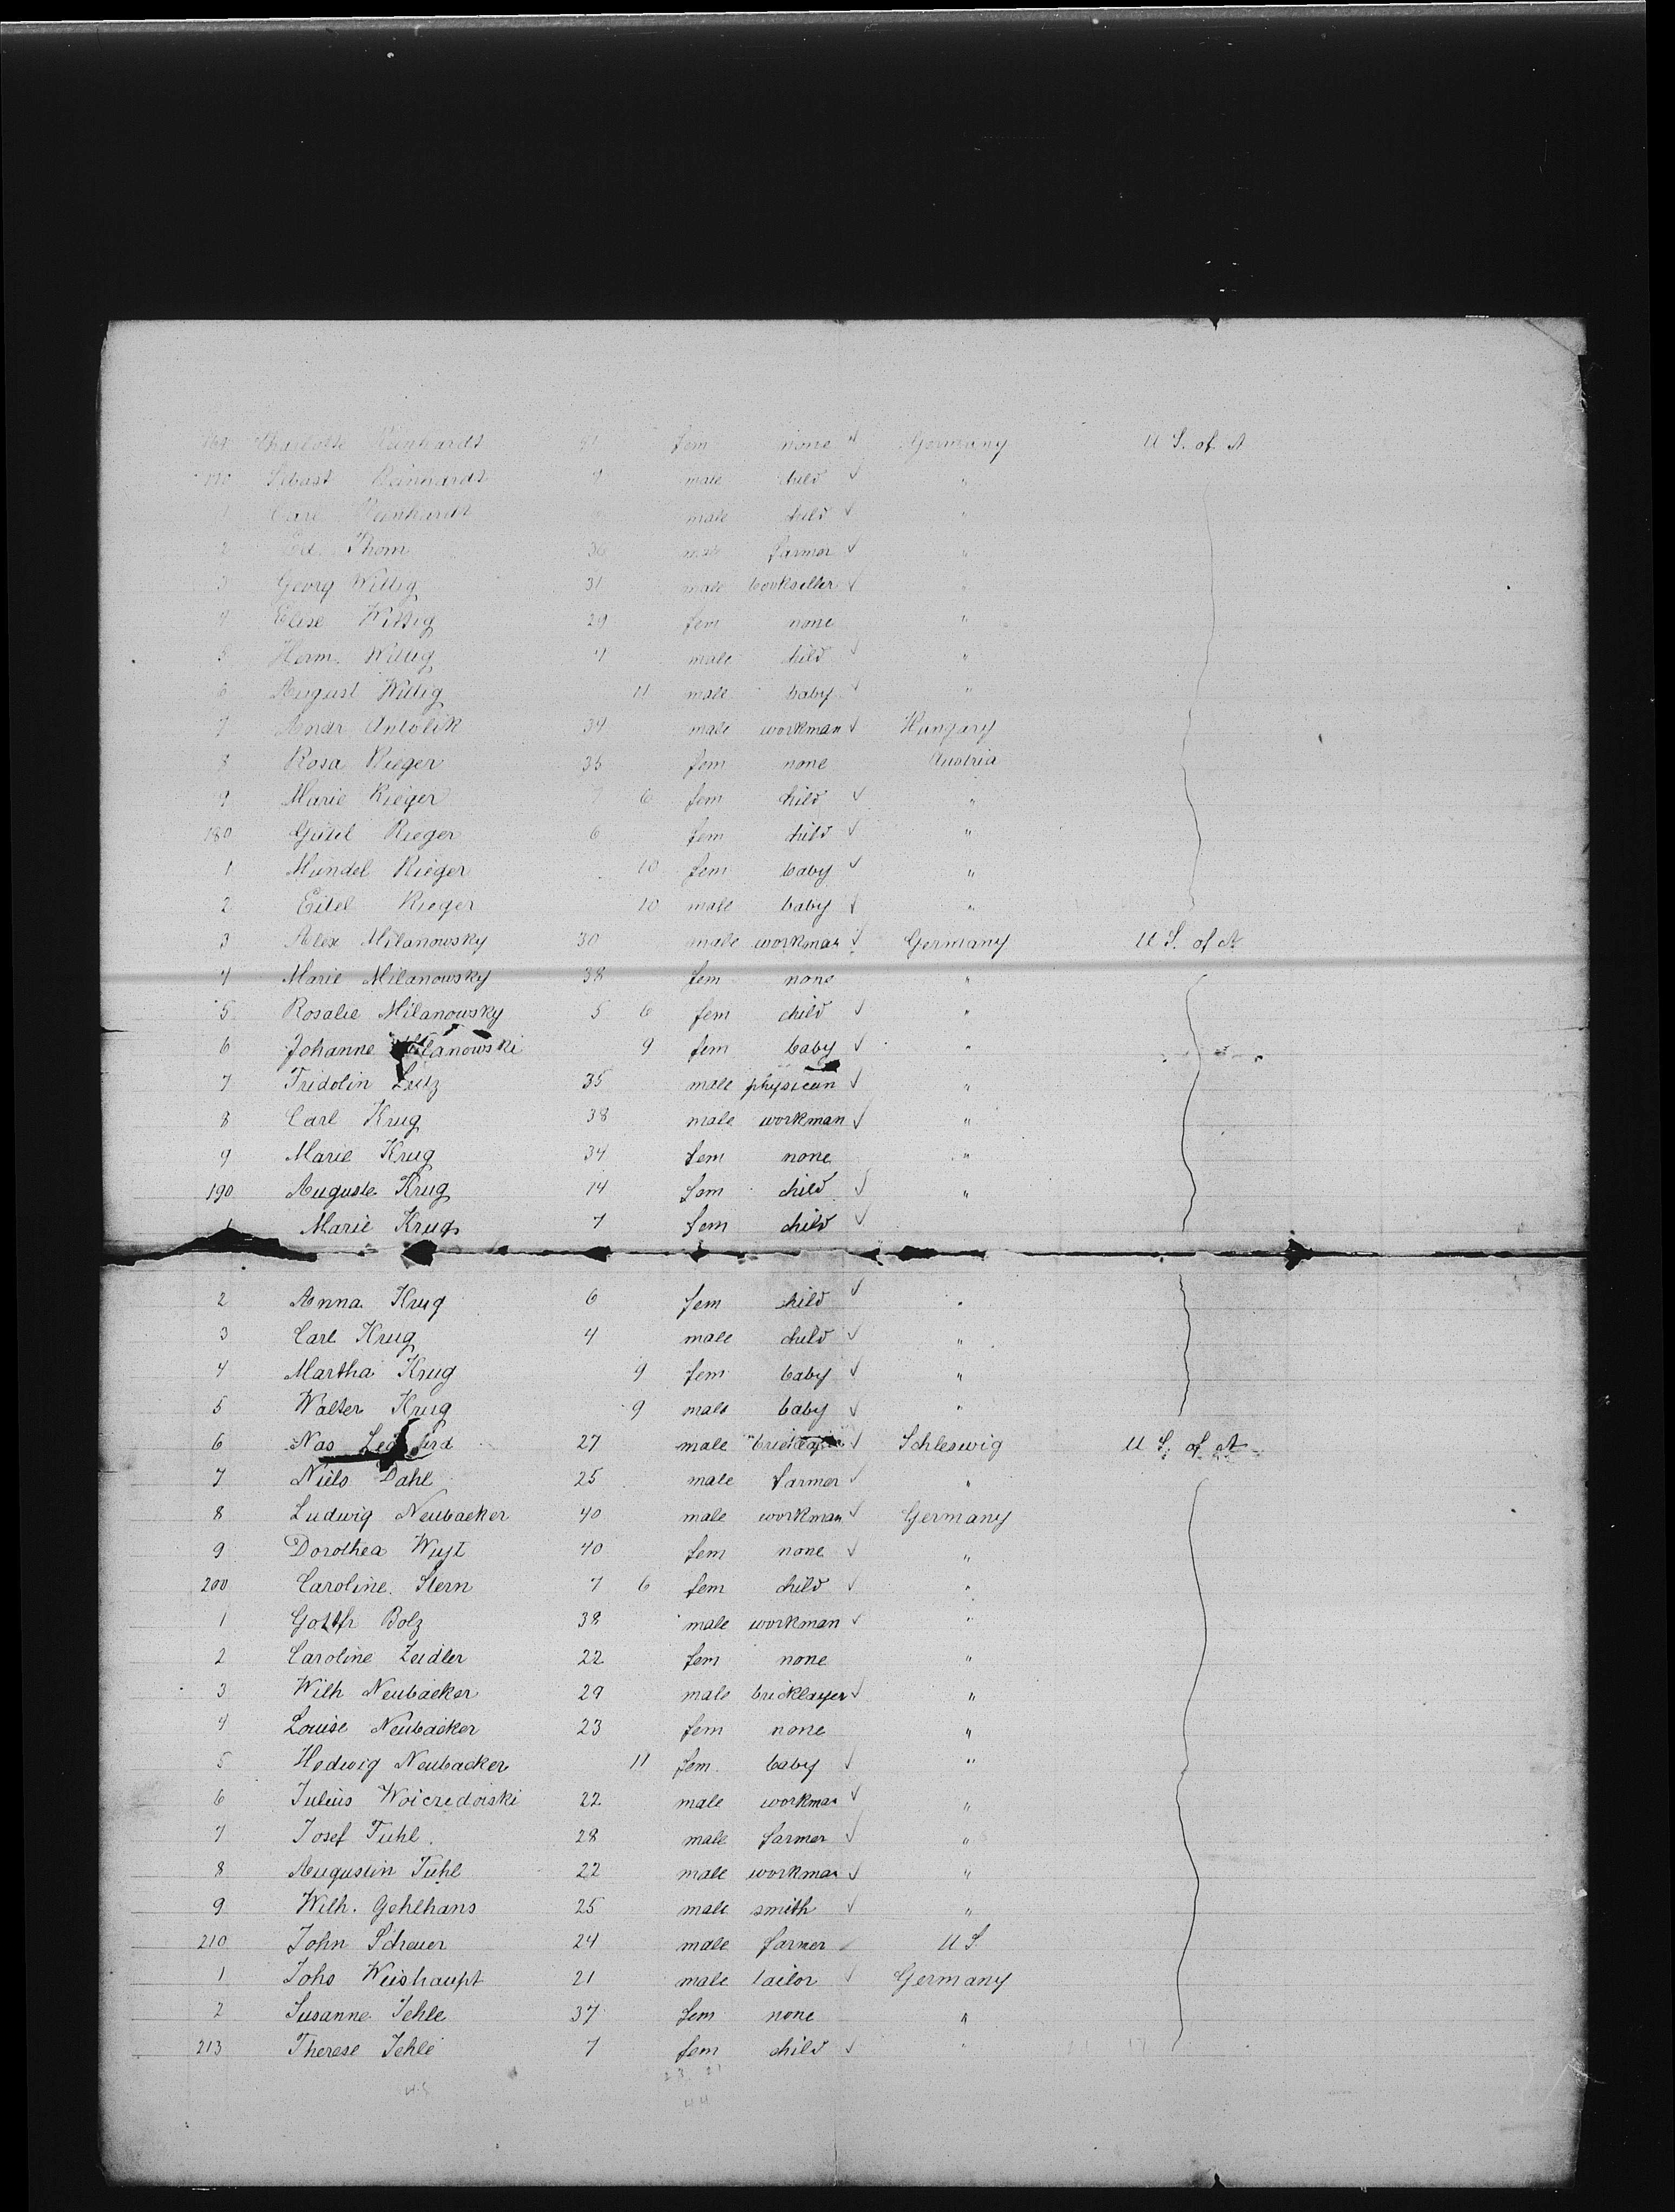 169 Charlotte Reinhardt 41 fem none √ Germany U S. of A
170 Sebast Reinhardt 7 male child √ "
1 Carl Reinhardt male child √ "
2 Ed. Thom 36 male farmer √ "
3 Georg Wittig 31 male bookseller √ "
4 Elise Wittig 29 fem none "
5 Herm. Wittig 4 male child √ "
6 August Wittig 11 male baby √ "
7 Andr Antolik 34 male workman √ Hungary
8 Rosa Rieger 36 fem none Austria
9 Marie Rieger 7 6 fem child √ "
180 Gütel Rieger 6 fem child √ "
1 Mündel Rieger 10 fem baby √ "
2 Eitel Rieger 10 male baby √ "
3 Alex Milanowsky 30 male workman √ Germany U S. of A
4 Marie Milanowsky 38 fem none "
5 Rosalie Milanowsky 5 6 fem child √ "
6 Johanne Milanowski 9 fem baby √ "
7 Fridolin Lutz 35 male physician √ "
8 Carl Krug 38 male workman √ "
9 Marie Krug 34 fem none "
190 Auguste Krug 14 fem child √ "
1 Marie Krug 7 fem child √
2 Anna Krug 6 fem child √ "
3 Carl Krug 4 male child √ "
4 Martha Krug 9 fem baby √ "
5 Walter Krug 9 male baby √ "
6 Nas 27 male bricklayer √ Schleswig U S. of A
7 Niels Dahl 25 male farmer √ "
8 Ludwig Neubacker 40 male workman √ Germany
9 Dorothea Wust 40 fem none √ "
200 Caroline Stern 7 6 fem child √ "
1 Gottfr Bolz 38 male workman √ "
2 Caroline Zeidler 22 fem none "
3 Wilh Neubacker 29 male bricklayer √ "
4 Louise Neubacker 23 fem none "
5 Hedwig Neubacker 11 fem. baby √ "
6 Julius Woicredoiski 22 male workman √ "
7 Josef Tuhl. 28 male farmer √ "
8 Augustin Tuhl 22 male workman √ "
9 Wilh. Gehlhans 25 male smith √ "
210 John Scheuer 24 male farmer √ U S.
1 Johs Weishaupt 21 male tailor √ Germany
2 Susanne Jehle 37 fem none "
213 Therese Jehle 7 fem child √ "
23 21
45
44